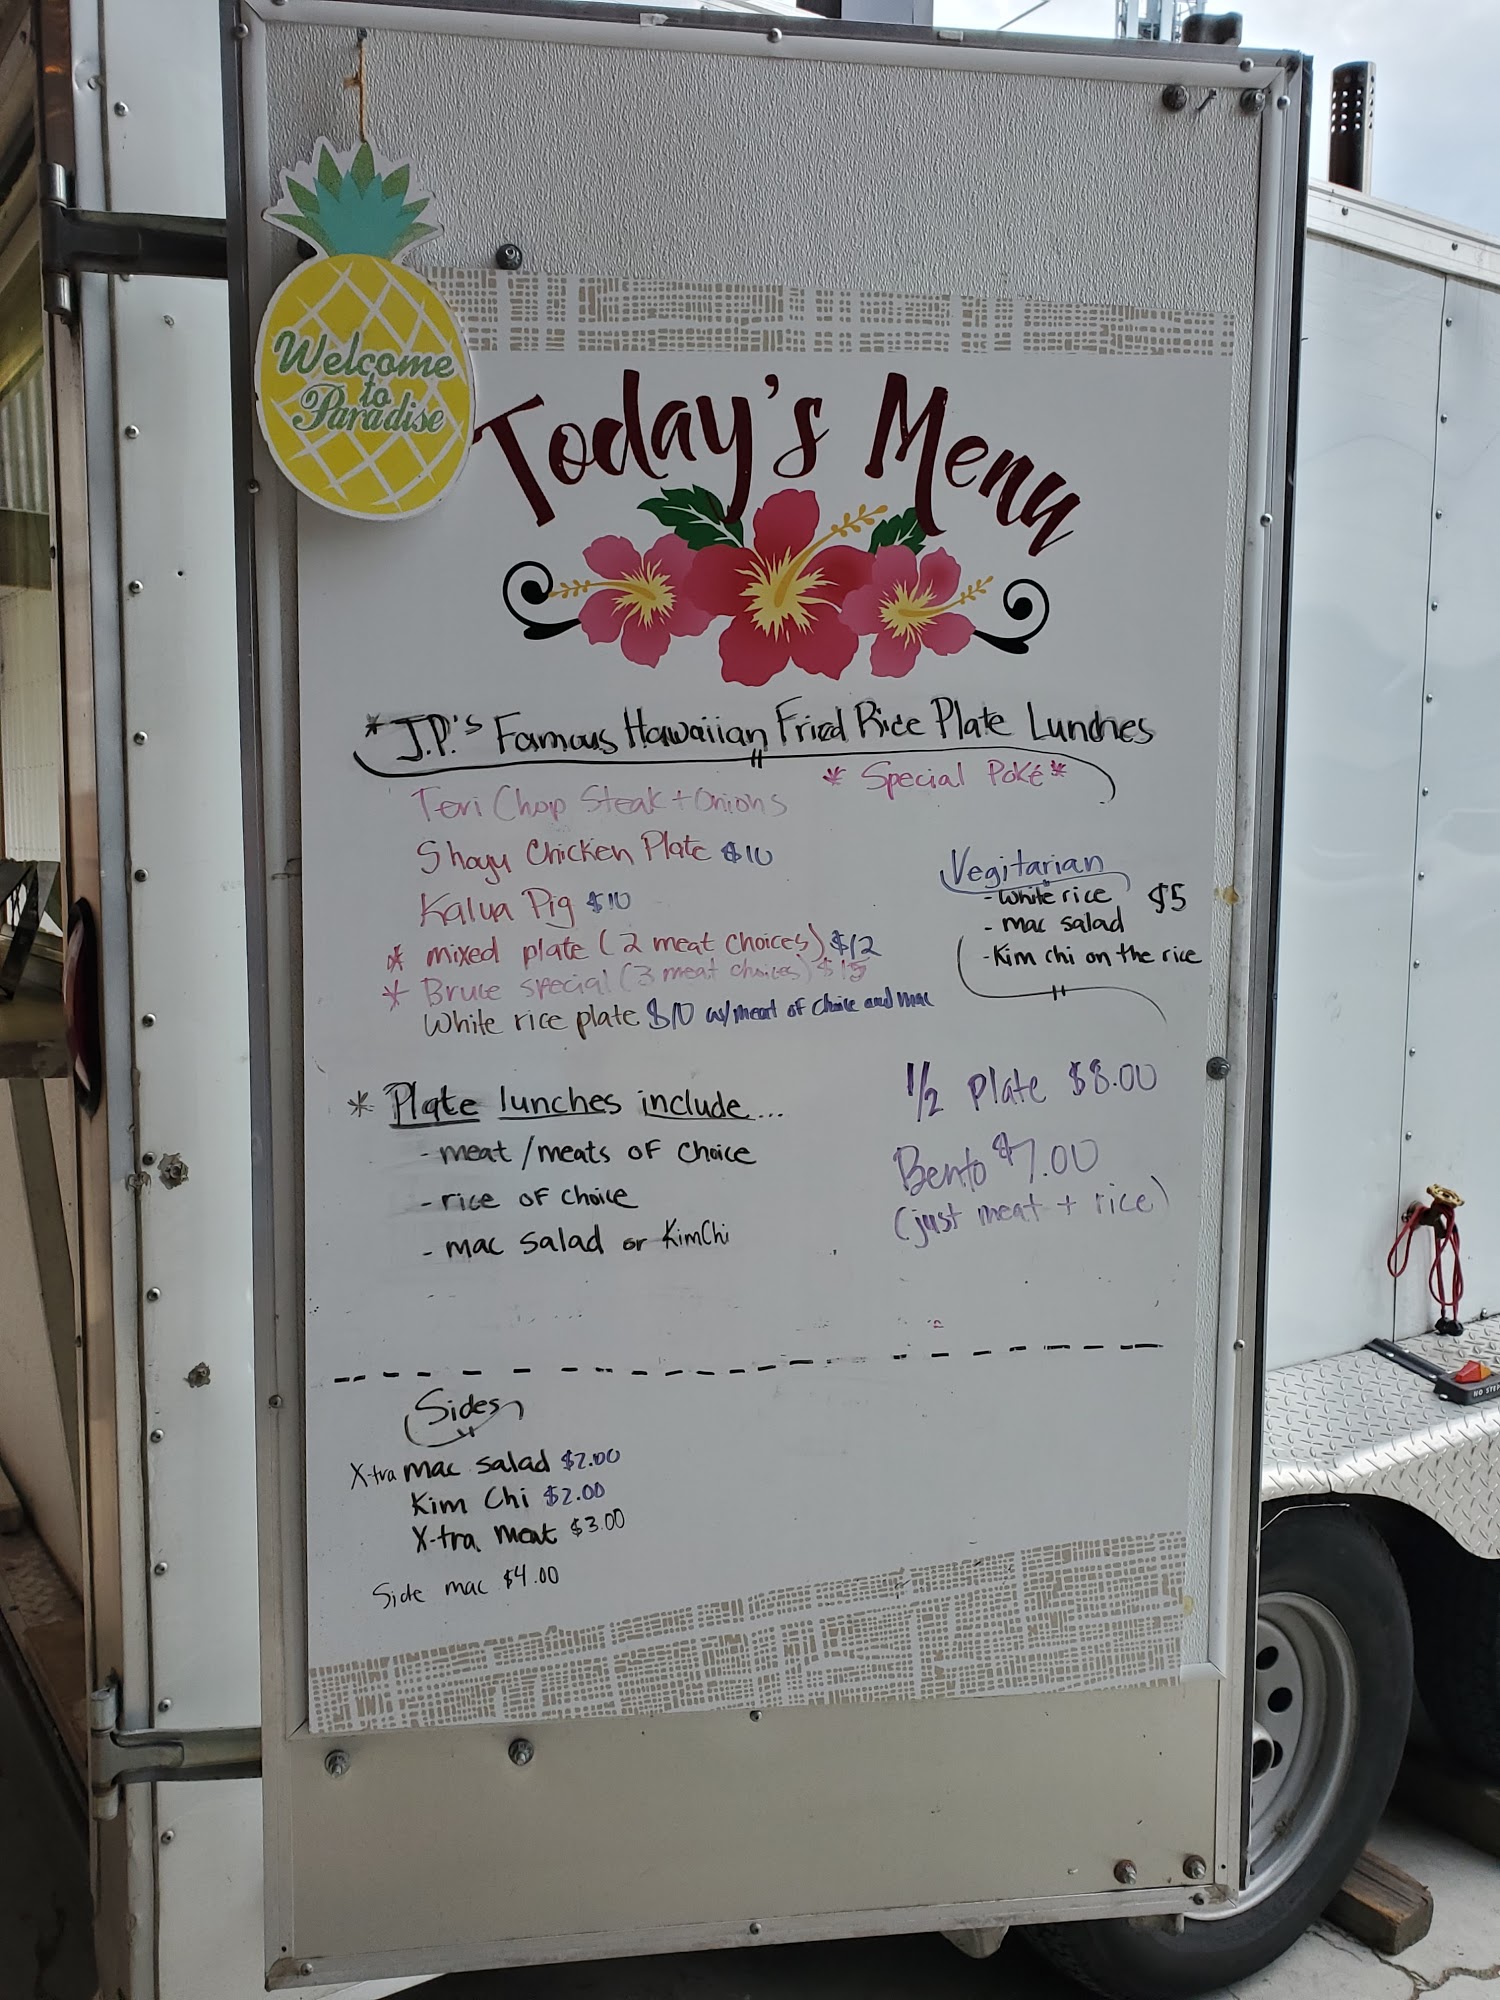 Welcome
to
Paradise
Today's Menu
* J.P.'s Famous Hawaiian Fried Rice Plate Lunches
* Special Poké *
Teri Chop Steak + Onions
Shoyu Chicken Plate $10
Kalua Pig $10
* mixed plate (2 meat choices) $12
* Bruce special (3 meat choices) $15
White rice plate $10 w/meat of choice and mac
Vegitarian
- White rice $5
- mac salad
- Kim chi on the rice
* Plate lunches include...
- meat/meats of choice
- rice of choice
- mac salad or KimChi
1/2 Plate $8.00
Bento $7.00
(just meat + rice)
Sides
X-tra mac salad $2.00
Kim Chi $2.00
X-tra meat $3.00
Side mac $4.00
NO STEP